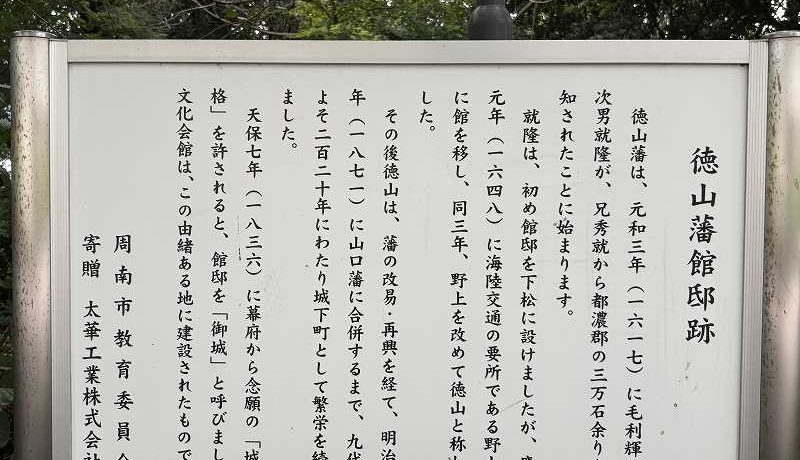 徳山藩館邸跡
徳山藩は、元和三年（一六一七）に毛利輝
次男就隆が、兄秀就から都濃郡の三万石余り
知されたことに始まります。
就隆は、初め館邸を下松に設けましたが、
元年（一六四八）に海陸交通の要所である野
に館を移し、同三年、野上を改めて徳山と称
した。
その後徳山は、藩の改易・再興を経て、明治
年（一八七一）に山口藩に合併するまで、九代
よそ二百二十年にわたり城下町として繁栄を続
ました。
天保七年（一八三六）に幕府から念願の「城
格」を許されると、館邸を「御城」と呼びまし
文化会館は、この由緒ある地に建設されたもので
周南市教育委員会
寄贈 太華工業株式会社